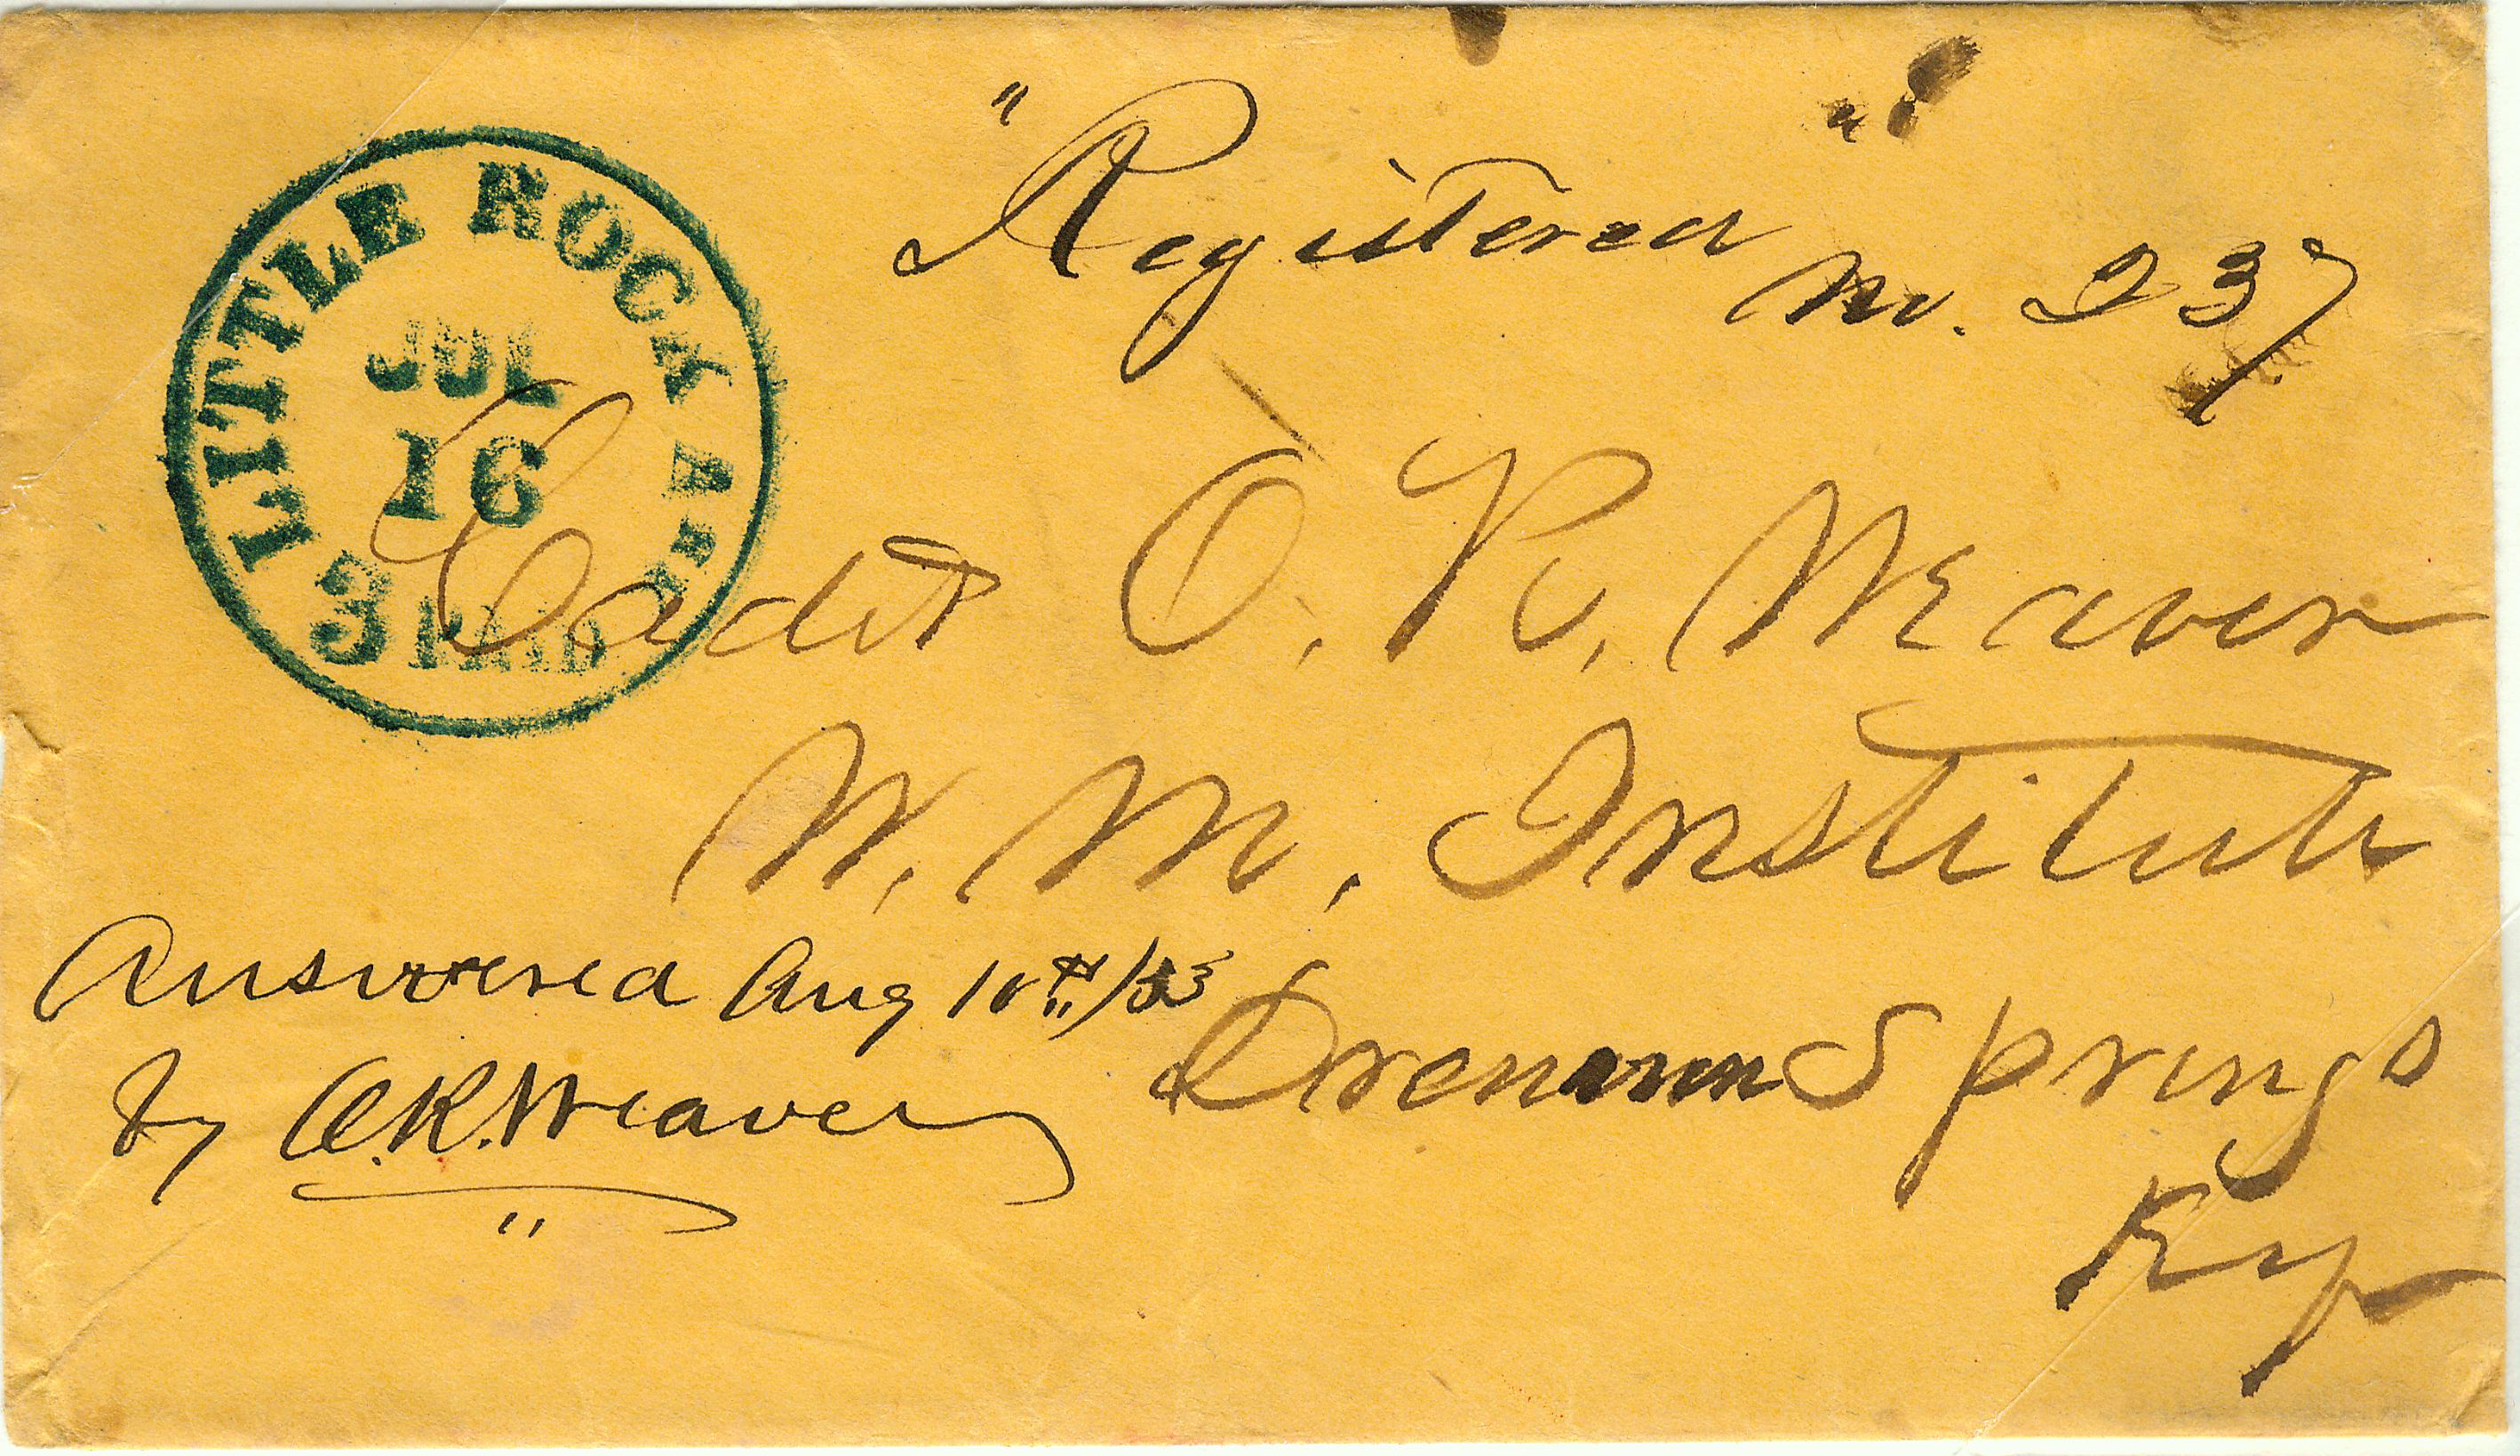 "Registered"
No. 237
LITTLE ROCK ARK
JUL
16
3 PAID
Cadet O. R. Weaver
W. M. Institute
Drennon Springs
Ky
Answered Aug 10th/53
by O.R. Weaver